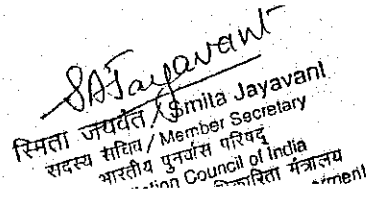 SAJayavant
स्मिता जयवंत / Smita Jayavant
सदस्य सचिव / Member Secretary
भारतीय पुनर्वास परिषद्
Council of India
मंत्रालय